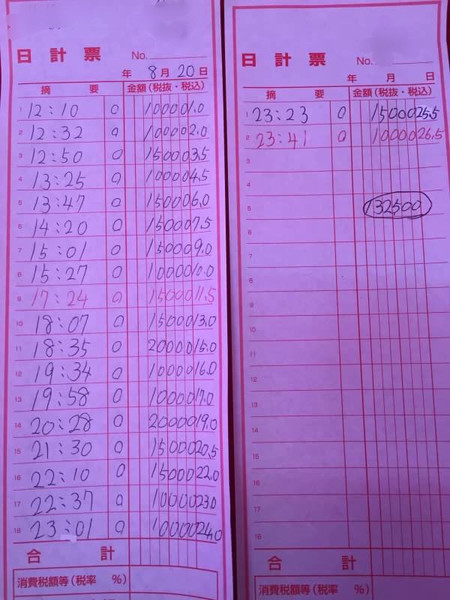 日計票 No.
年 8月 20日
摘要 金額(税抜・税込)
1 12:10 0 10000 1.0
2 12:32 0 10000 2.0
3 12:50 0 15000 3.5
4 13:25 0 10000 4.5
5 13:47 0 15000 6.0
6 14:20 0 15000 7.5
7 15:01 0 15000 9.0
8 15:27 0 10000 10.0
9 17:24 0 15000 11.5
10 18:07 0 15000 13.0
11 18:35 0 20000 15.0
12 19:34 0 10000 16.0
13 19:58 0 10000 17.0
14 20:28 0 20000 19.0
15 21:30 0 15000 20.5
16 22:10 0 15000 22.0
17 22:37 0 10000 23.0
18 23:01 0 10000 24.0
合計
消費税額等(税率 %)
日計票 No.
年 月 日
摘要 金額(税抜・税込)
1 23:23 0 15000 25.5
2 23:41 0 10000 26.5
3
4
5 132500
6
7
8
9
10
11
12
13
14
15
16
17
18
合計
消費税額等(税率 %)